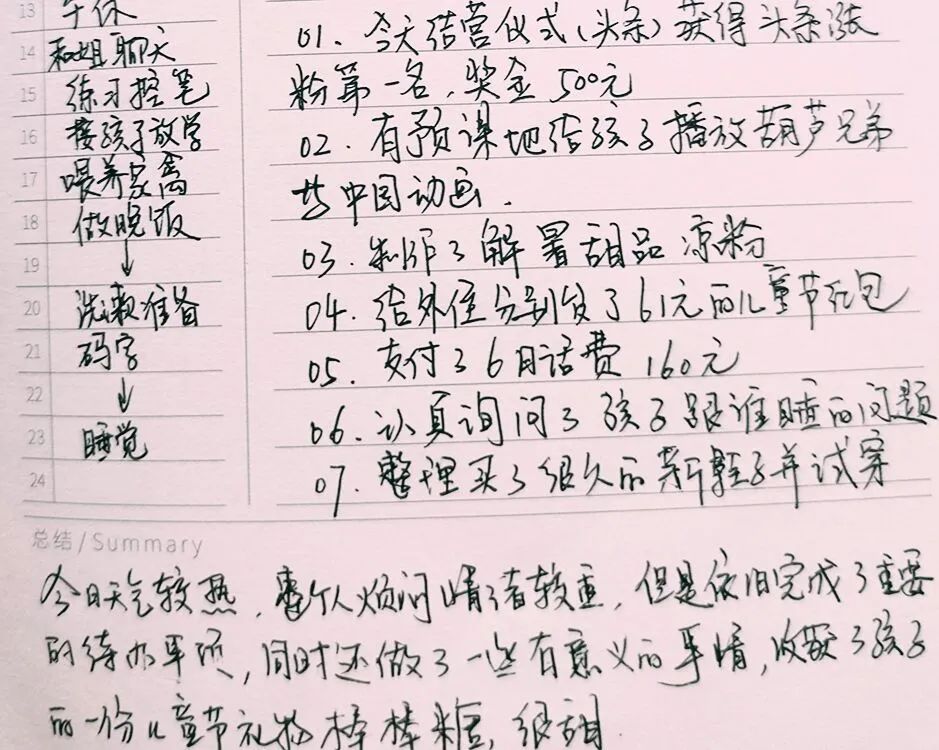 13 午休
14 和姐聊天
15 练习控笔
16 接孩子放学
17 喂养家禽
18 做晚饭
19 ↓
20 洗漱准备
21 码字
22 ↓
23 睡觉
24
01. 今天结营仪式(头条)获得头条涨
粉第一名,奖金500元
02. 有预谋地给孩子播放葫芦兄弟
等中国动画.
03. 制作了解暑甜品凉粉
04. 给外侄分别发了61元的儿童节红包
05. 支付了6月话费160元
06. 认真询问了孩子跟谁睡的问题
07. 整理买了很久的新鞋子并试穿
总结/Summary
今日天气较热,整个人烦闷情绪较重,但是依旧完成了重要
的待办事项,同时还做了一些有意义的事情,收获了孩子
的一份儿童节礼物棒棒糖,很甜